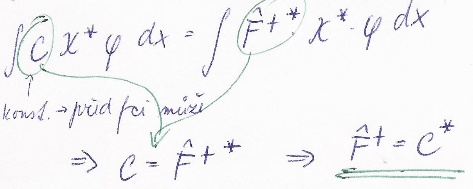 ∫ C χ* φ dx = ∫ F̂⁺* χ* · φ dx
konst. → před fci může
⇒ C = F̂⁺* ⇒ F̂⁺ = C*